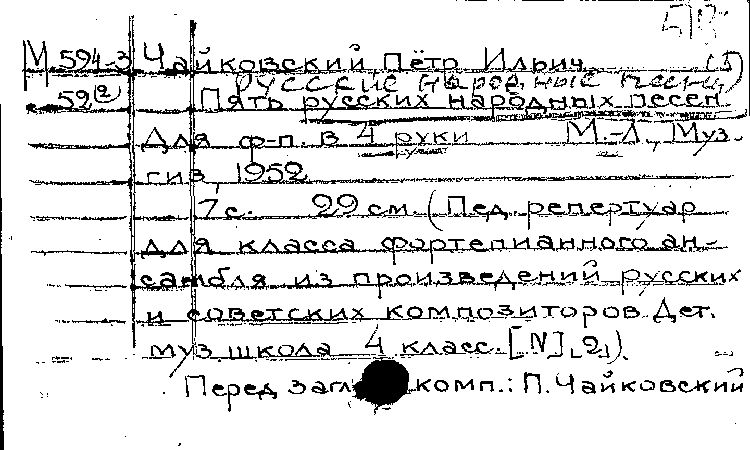 М 594-3 Чайковский Пётр Ильич (5)
русские народные песни
52(2) Пять русских народных песен.
Для ф-п. в 4 руки М.-Л., Муз-
гиз, 1952
7 с. 29 см. (Пед. репертуар
для класса фортепианного ан-
самбля из произведений русских
и советских композиторов. Дет.
муз. школа 4 класс. [N], 2,).
Перед загл. комп.: П. Чайковский